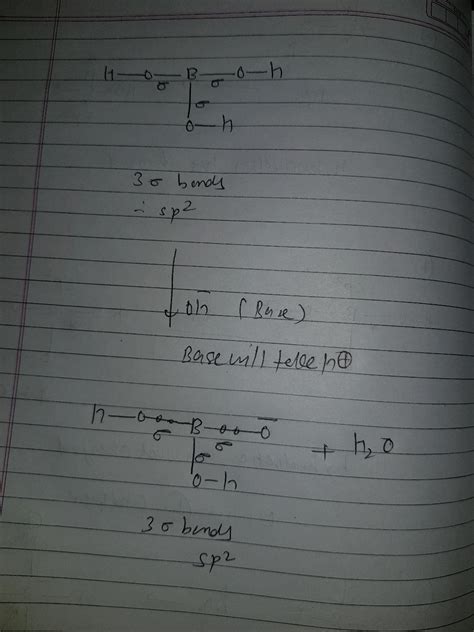 H—O—B—O—h
σ σ
σ
O—h
3 σ bonds
∴ sp²
Oh̄ (Base)
Base will take h⊕
h—O—B—O⁻ + h₂O
σ σ
σ
O—h
3 σ bonds
sp²